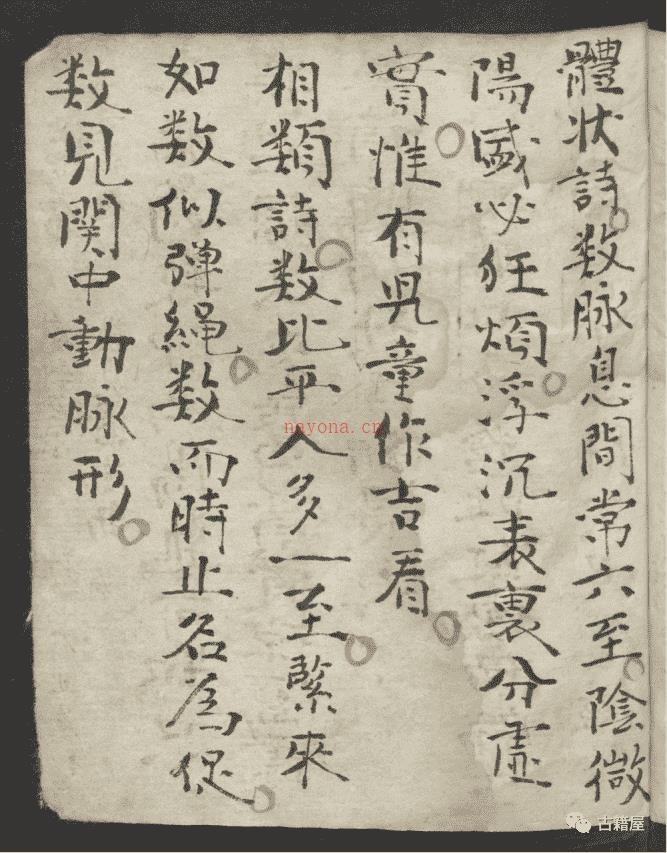 體状詩数脉息間常六至陰微
陽盛必狂煩浮沉表裏分虛
實惟有児童作吉看
相類詩数比平人多一至緊來
如数似弹繩数而時止名為促
数見関中動脉形
nayona.cn
古籍屋